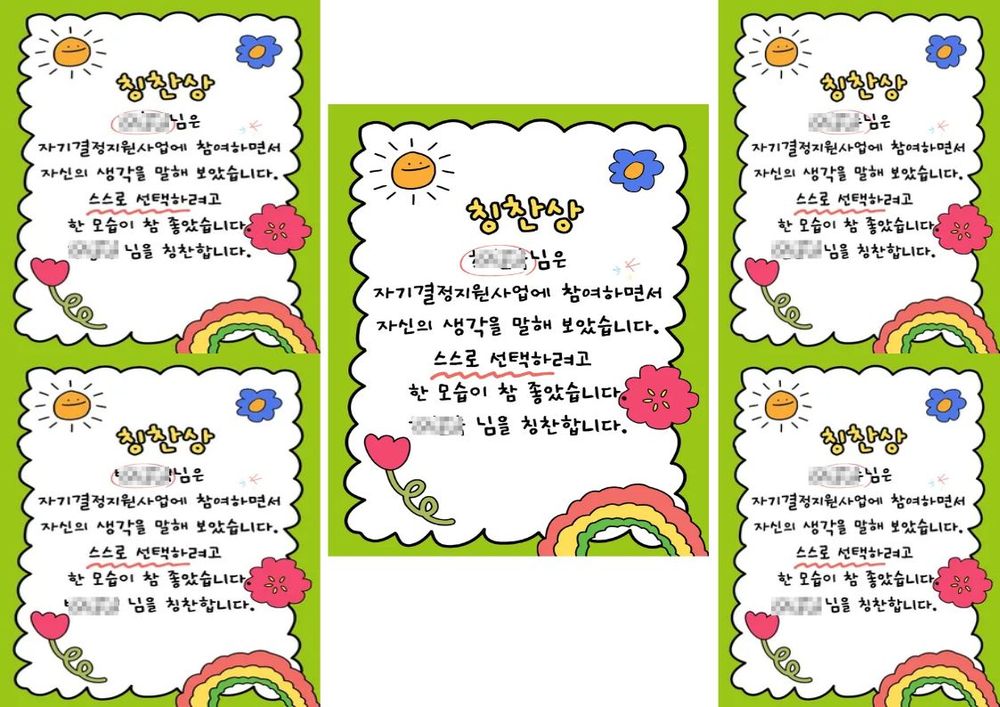 칭찬상
님은
자기결정지원사업에 참여하면서
자신의 생각을 말해 보았습니다.
스스로 선택하려고
한 모습이 참 좋았습니다.
님을 칭찬합니다.
칭찬상
님은
자기결정지원사업에 참여하면서
자신의 생각을 말해 보았습니다.
스스로 선택하려고
한 모습이 참 좋았습니다
님을 칭찬합니다.
칭찬상
님은
자기결정지원사업에 참여하면서
자신의 생각을 말해 보았습니다.
스스로 선택하려고
한 모습이 참 좋았습니다.
님을 칭찬합니다.
칭찬상
님은
자기결정지원사업에 참여하면서
자신의 생각을 말해 보았습니다.
스스로 선택하려고
한 모습이 참 좋았습니다.
님을 칭찬합니다.
칭찬상
님은
자기결정지원사업에 참여하면서
자신의 생각을 말해 보았습니다.
스스로 선택하려고
한 모습이 참 좋았습니다.
님을 칭찬합니다.